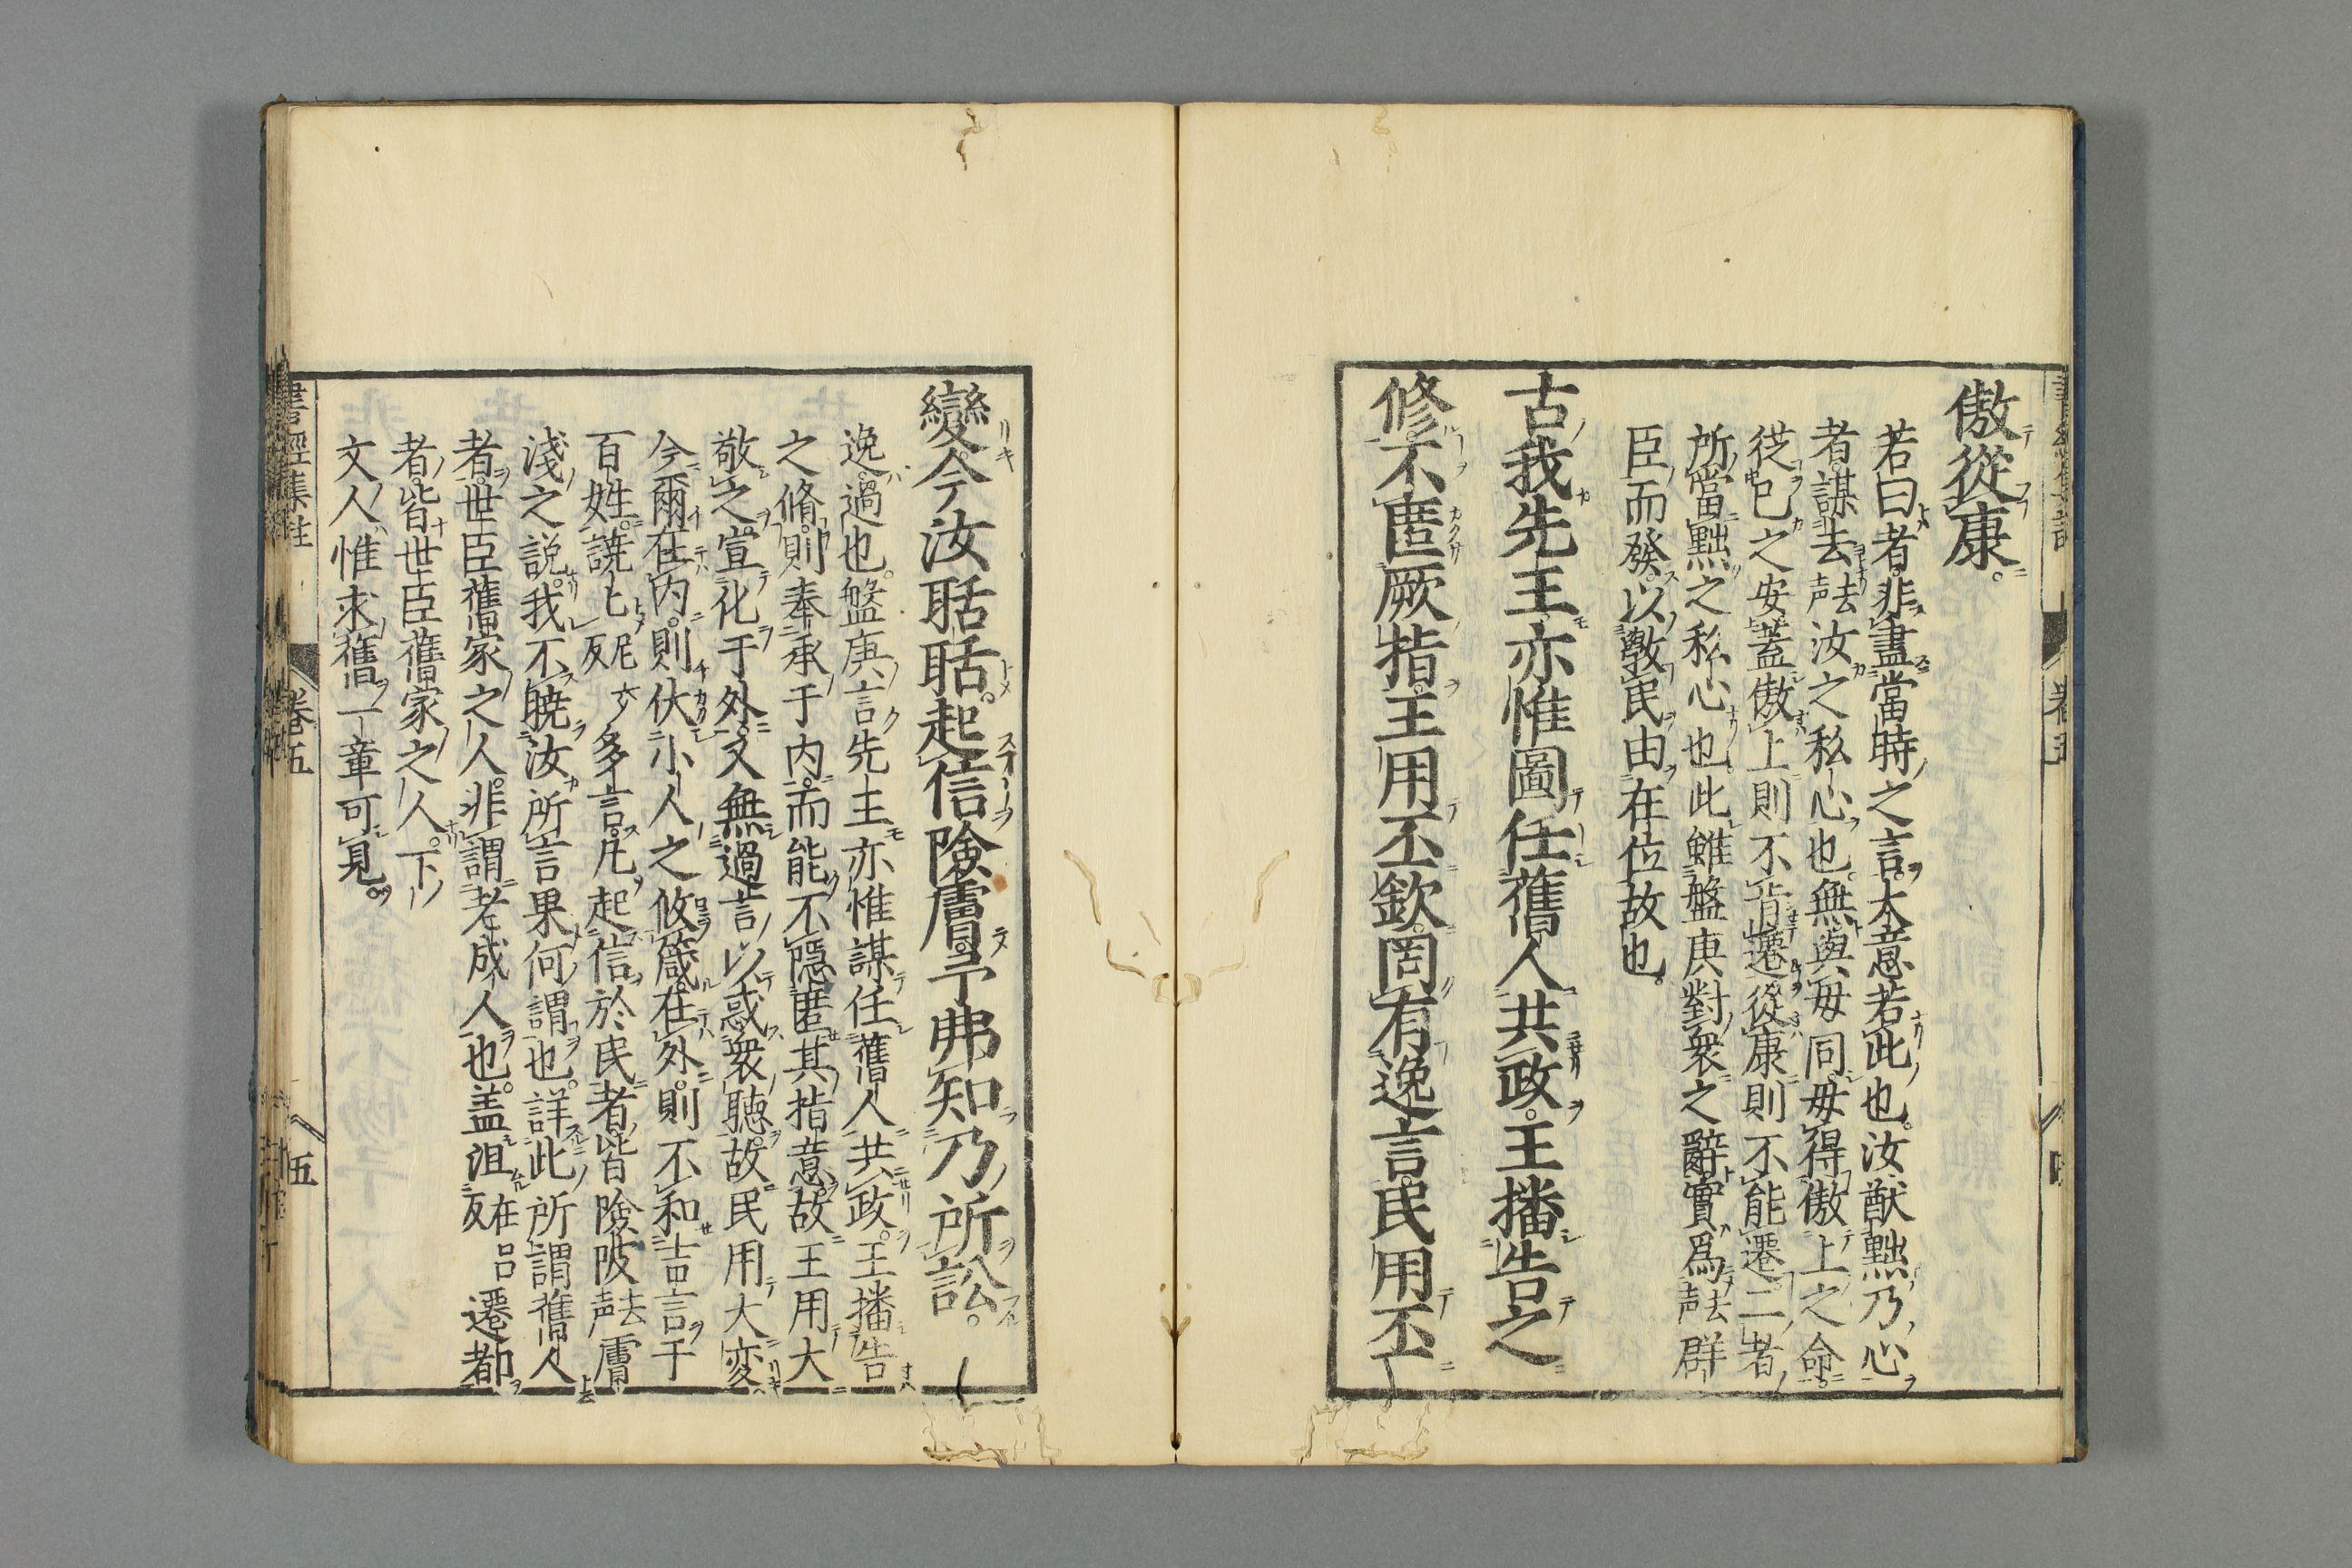 傲從康。
若曰者。非盡當時之言。大意若此也。汝猷黜乃心
者。謀去声汝之私心也。無與毋同。毋得傲上之命
從己之安。蓋傲上則不肯遷。從康則不能遷。二者
所當黜之私心也。此雖盤庚對衆之辭。實爲去声群
臣而發。以斆民由在位故也。
古我先王。亦惟圖任舊人共政。王播告之
修。不匿厥指。王用丕欽。罔有逸言。民用丕
變。今汝聒聒。起信險膚。予弗知乃所訟。
逸。過也。盤庚言先王亦惟謀任舊人共政。王播告
之脩。則奉承于內。而能不隱匿其指意。故王用大
敬之。宣化于外。又無過言以惑衆聽。故民用大変
今爾在內。則伏小人之攸箴。在外。則不和吉言于
百姓。譊譊尼交反多言。凡起信於民者。皆險陂去声膚
淺之說。我不曉汝所言果何謂也。詳此所謂舊人
者。世臣舊家之人。非謂老成人也。盖沮在呂反遷都
者。皆世臣舊家之人。下
文人惟求舊一章可見。
書經集註
卷五
五